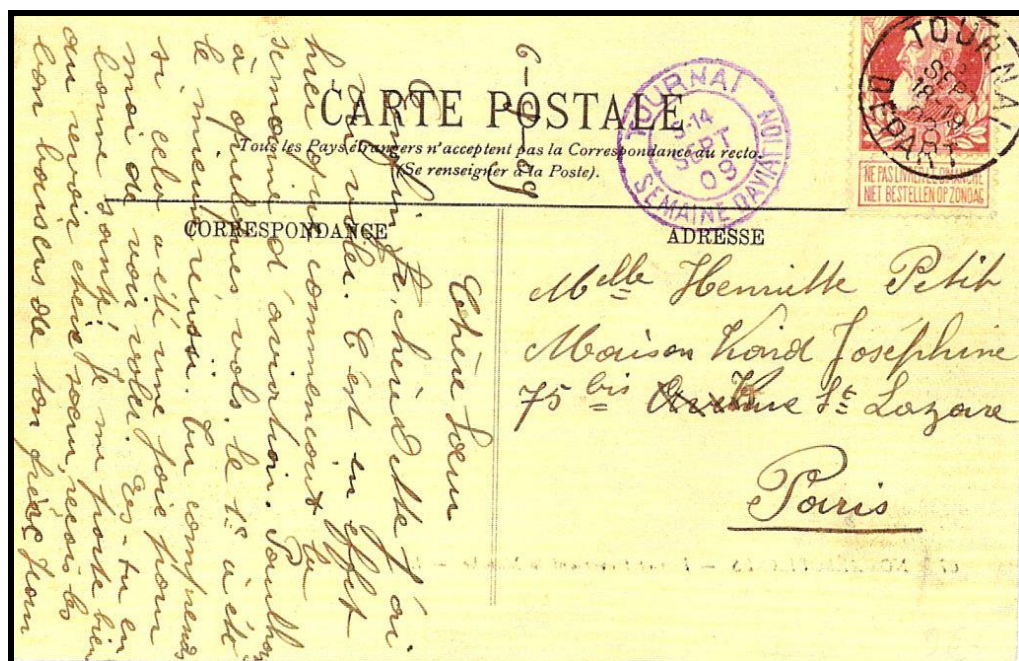 CARTE POSTALE
Tous les Pays étrangers n'acceptent pas la Correspondance au recto.
(Se renseigner à la Poste).
CORRESPONDANCE
ADRESSE
TOURNAI
3-14
SEPT
09
SEMAINE D'AVIATION
TOURNAI
SEPT
18-19
DEPART
NE PAS LIVRER LE DIMANCHE
NIET BESTELLEN OP ZONDAG
Melle Henriette Petit
Maison Joséphine
75 bis St Lazare
Paris
6-9-09
Chère Sœur
Enfin, chère j'ai
vu voler. C'est en effet
hier que commençait la
semaine d'aviation. Paulhan
a quelques vols. le 1er a été
le mieux réussi. Tu comprends
si cela a été une joie pour
moi de voir voler. Es-tu en
bonne santé, je me porte bien
au revoir chère sœur, reçois les
bons baisers de ton frère Jean